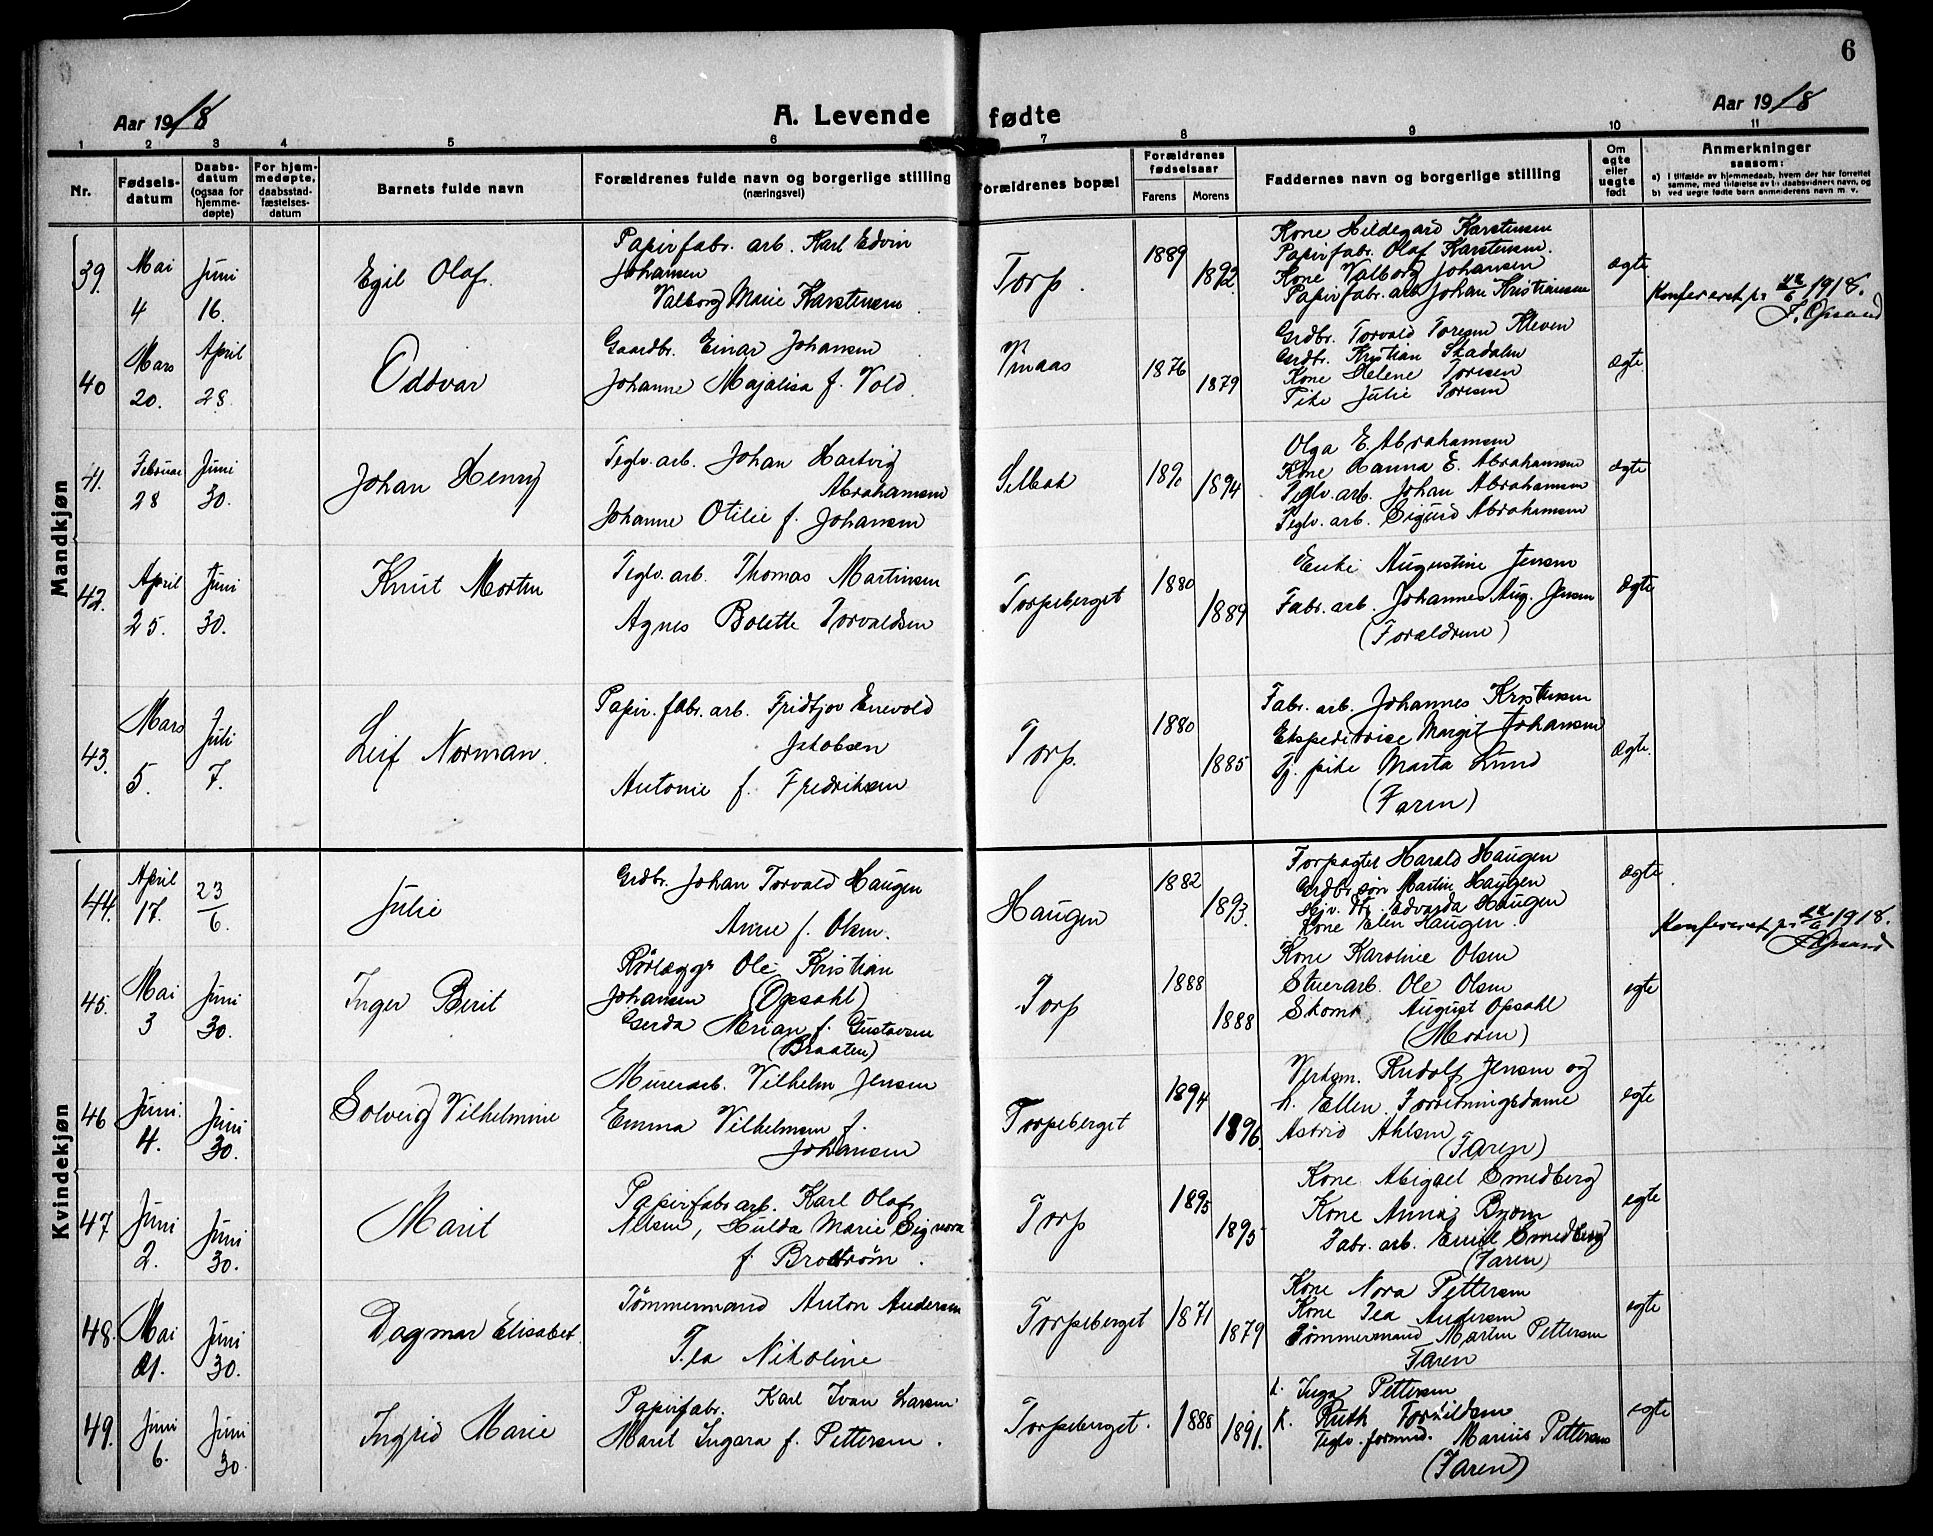 6
Aar 1918
A. Levende fødte
Aar 1918
1 2 3 4 5 6 7 8 9 10 11
Nr.
Fødsels-
datum
Daabs-
datum
(ogsaa for
hjemme-
døpte)
For hjem-
medøpte,
daabsstad-
fæstelses-
datum
Barnets fulde navn
Forældrenes fulde navn og borgerlige stilling
(næringsvei)
Forældrenes bopæl
Forældrenes
fødselsaar
Farens
Morens
Faddernes navn og borgerlige stilling
Om
egte
eller
uegte
født
Anmerkninger
saasom:
a) I tilfælde av hjemmedaab, hvem der har forrettet
samme, med tilføielse av to daabsvidners navn, og
b) ved uegte fødte børn anmelderens navn m. v.
Mandkjøn
39. Mai 4 Juni 16. Egil Olaf.
Papirfabr. arb. Karl Edvin
Johansen
Valborg Marie Karstensen
Torp. 1889 1892
Kone Hildegard Karstensen
Papirfabr. Olaf Karstensen.
Kone Valborg Johansen
Papirfabr. arb Johan Kristiansen
ægte
Konfereret pr 1918.
40 Mars 20. April 28. Oddvar
Gaardbr. Einar Johansen
Johanne Majalisa f. Vold.
Vinaas 1876 1879
Grdbr. Torvald Toresen Kleven
Grdbr. Kristian Skadalen
Kone Helene Toresen
Pike Julie Toresen
ægte
41. Februar 28 Juni 30. Johan Henry
Teglv. arb. Johan Hartvig
Abrahamsen
Johanne Otilie f. Johansen
Selbak 1890 1894
Olga E. Abrahamsen
Kone Hanna E. Abrahamsen
Teglv. arb. Johan Abrahamsen
Teglv. arb. Sigurd Abrahamsen
ægte
42. April 25. Juni 30. Knut Morten
Teglv. arb. Thomas Martinsen
Agnes Bolette Torvaldsen
Torpeberget 1880 1889
Enke Augustine Jensen
Fabr. arb. Johannes Aug. Jensen
(Forældrene)
Ægte
43. Mars 5. Juli 7. Leif Norman.
Papir. fabr. arb. Fridtjov Enevold
Jakobsen
Antonie f. Fredriksen
Torp. 1880 1885
Fabr. arb. Johannes Kristensen
Ekspeditrise Margit Johansen
Tj. pike Marta Lund
(Faren)
Ægte.
Kvindekjøn
44. April 17. 23/6. Julie
Grdbr. Johan Torvald Haugen
Anne f. Olsen.
Haugen 1882 1893.
Forpagter Harald Haugen
Grdbr søn Martin Haugen
Hjv. dtr. Edvarda Haugen
Kone Elen Haugen.
ægte.
Konfereret pr 1918.
45. Mai 3 Juni 30. Inger Berit
Rørlægger Ole Kristian
Johansen (Opsahl)
Gerda Merian f. Gustavsen
(Braaten)
Torp 1888 1888
Kone Karoline Olsen
Stuerarb. Ole Olsen
Skom. August Opsahl
(Moren)
egte
46 Juni. 4. Juni 30. Solveig Vilhelmine
Murerarb. Vilhelm Jensen
Emma Vilhelmsen f.
Johansen
Torpeberget 1894 1896.
Verksm. Rudolf Jensen og
h. Ellen. Forretningsdame
Astrid Ahlsen
(Faren)
egte
47 Juni 2. Juni 30. Marit
Papirfabr arb. Karl Olaf
Nilsen, Hulda Marie Signora
f. Brodtrøm.
Torp 1895 1895
Kone Abigael Smedberg
Kone Anna Byom
Fabr. arb. Emil Smedberg
(Faren)
egte
48. Mai 21. Juni 30. Dagmar Elisabet.
Tømmermand Anton Andersen
Tea Nikoline
Torpeberget 1871 1879
Kone Nora Pettersen
Kone Tea Andersen
Tømmermand Martin Pettersen
Faren
egte
49. Juni 6. Juni 30. Ingrid Marie
Papirfabr. Karl Ivan Larsen
Marit Ingara f. Pettersen.
Torpeberget. 1888 1891.
k. Inga Pettersen
k. Ruth Torkildsen
Teglv. formnd. Marius Pettersen
(Faren)
egte